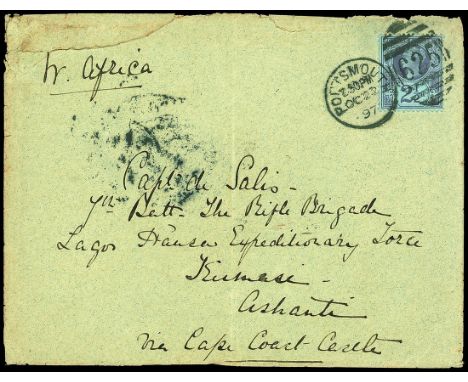 W. Africa
PORTSMOUTH
7.30PM
OC 23
97
625
2½
Capt. de Salis -
7th Batt. The Rifle Brigade
Lagos Hausa Expeditionary Force
Kumasi -
Ashanti
via Cape Coast Castle